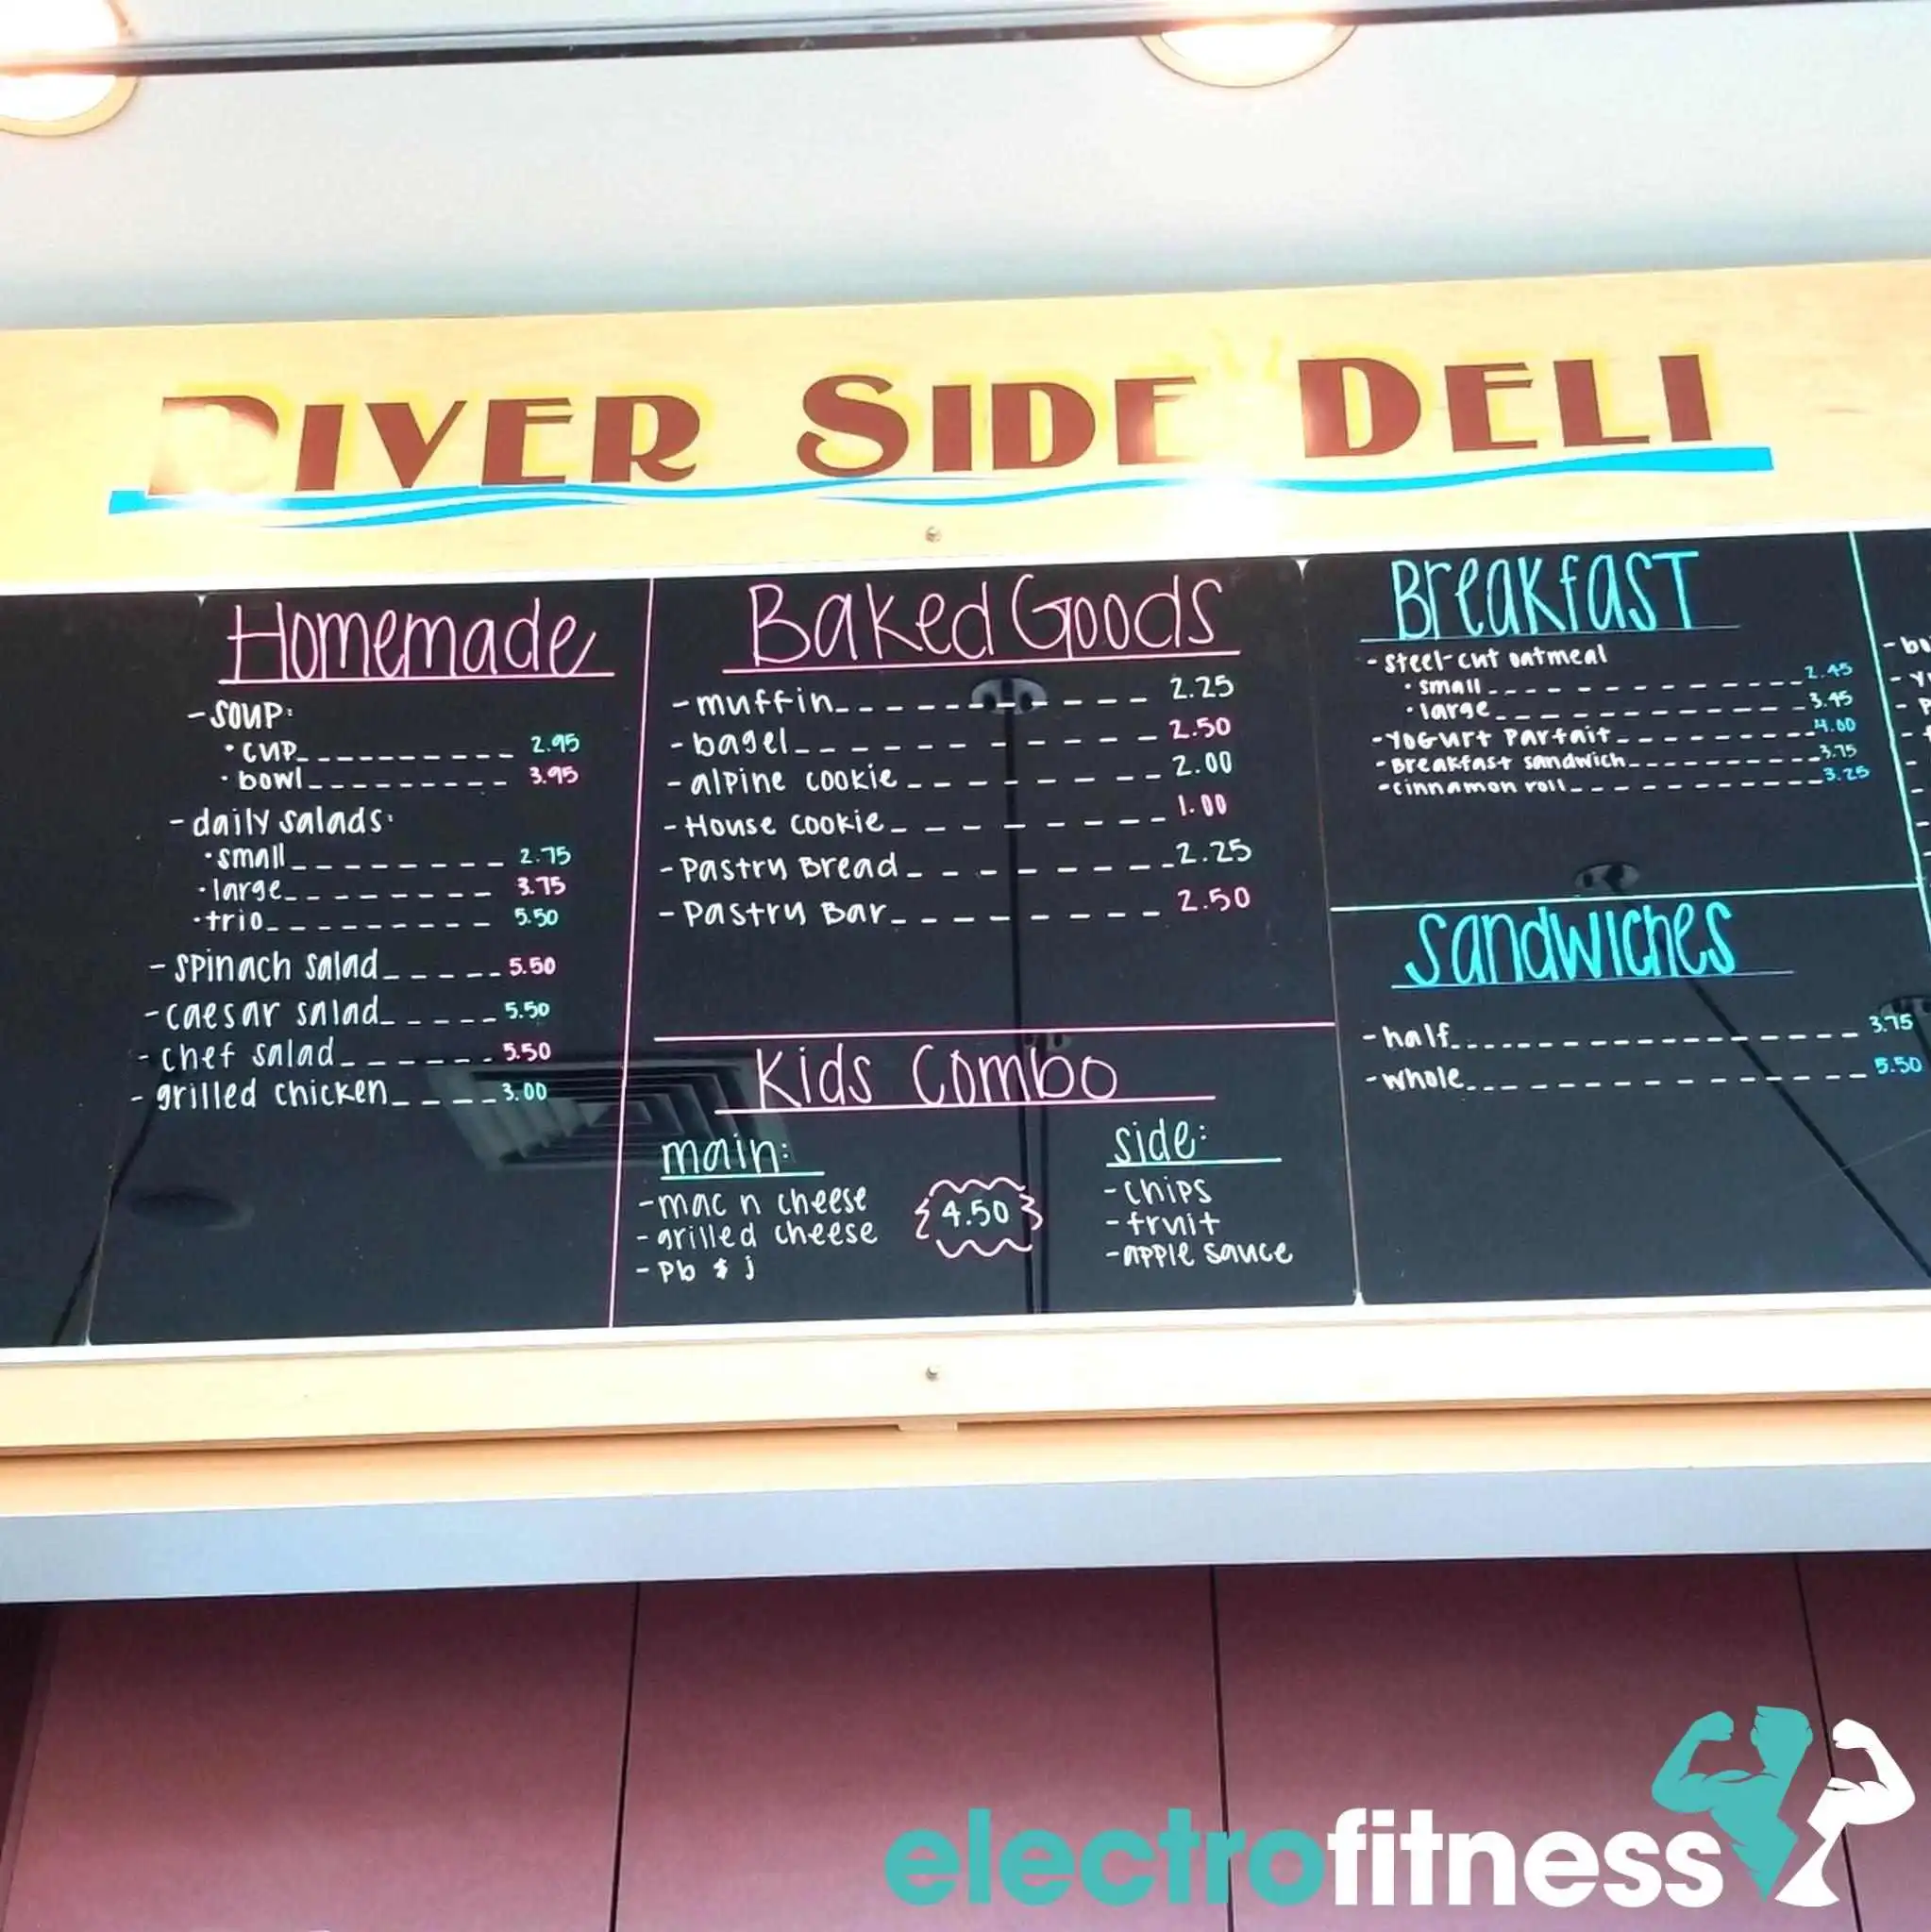 RIVER SIDE DELI
Homemade
- soup:
• cup__________ 2.95
• bowl_________ 3.95
- daily salads:
• small________ 2.75
• large________ 3.75
• trio_________ 5.50
- spinach salad_____ 5.50
- caesar salad_____ 5.50
- chef salad______ 5.50
- grilled chicken____ 3.00
Baked Goods
- muffin________ 2.25
- bagel_________ 2.50
- alpine cookie_______ 2.00
- House cookie_______ 1.00
- Pastry Bread_______ 2.25
- Pastry Bar________ 2.50
Kids Combo
main:
- mac n cheese
- grilled cheese
- Pb & j
4.50
side:
- chips
- fruit
- apple sauce
Breakfast
- steel-cut oatmeal
• small___________ 2.45
• large___________ 3.45
- Yogurt Parfait_________ 4.00
- Breakfast sandwich_________ 3.75
- cinnamon roll___________ 3.25
Sandwiches
- half_______________ 3.75
- whole______________ 5.50
electrofitness